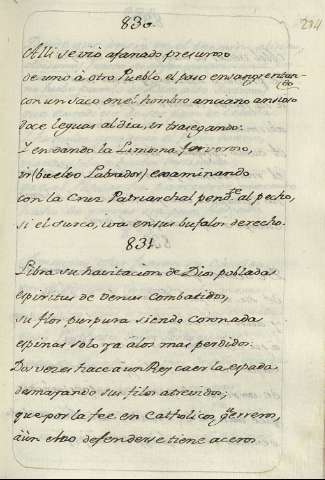 830.
214
Alli se vio afanado presuroso
de uno à otro Pueblo el paso ensangrentando
con un saco en el hombro anciano ansioso
doce leguas al dia, ir trasegando:
Y en dando la Limosna fervoroso,
ir (buelto Labrador) examinando
con la Cruz Patriarchal pend.te al pecho,
si el surco, iva en sus bufalos derecho.
831.
Libra su havitacion de Dios poblada
espiritus de Venus combatidos,
su flor purpura siendo coronada
espinas solo ya àlos mas perdidos.
Dos veces hace à un Rey caer la espada
desmayando sus filos atrevidos;
que por la fee en Catholicos guerreros,
aùn el no defenderse tiene aceros.